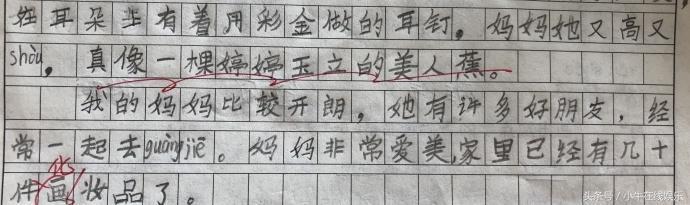 耳朵上有着用彩金做的耳钉，妈妈她又高又
shòu，真像一棵婷婷玉立的美人蕉。
我的妈妈比较开朗，她有许多好朋友，经
常一起去guàngjiē。妈妈非常爱美，家里已经有几十
件画妆品了。
化
头条号 / 小牛在线娱乐